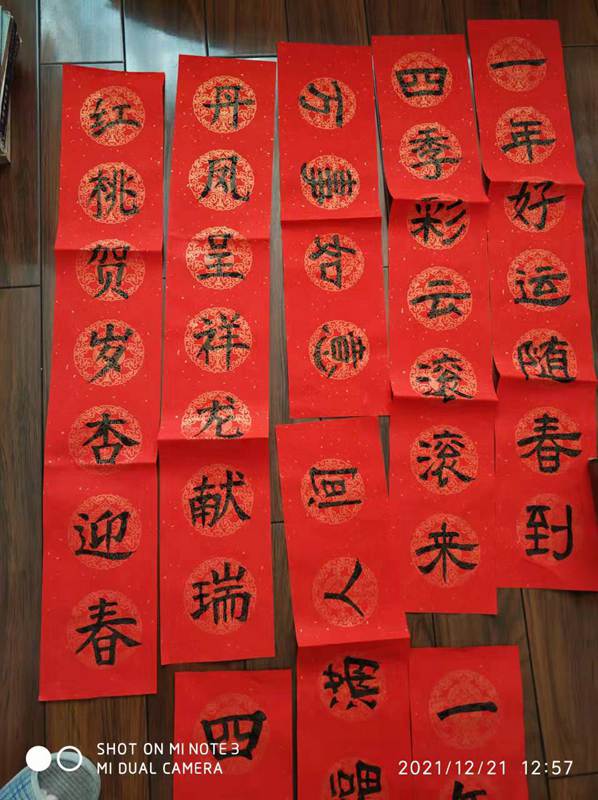 一年好运随春到
四季彩云滚滚来
万事如意
丹凤呈祥龙献瑞
红桃贺岁杏迎春
福满人间
一
四
SHOT ON MI NOTE 3
MI DUAL CAMERA
2021/12/21 12:57